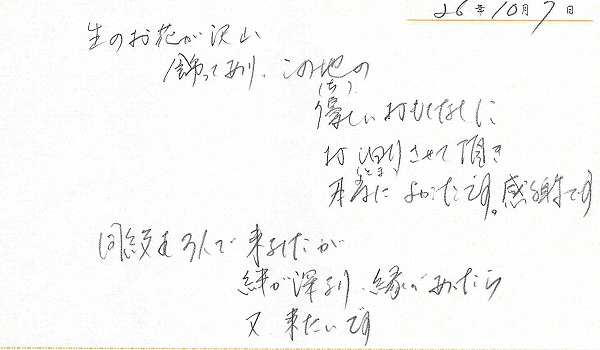 26年10月7日
生のお花が沢山
飾ってあり、この地の
(ち)
優しいおもてなしに
お泊りさせて頂き
(とまり)
本等によかったです。感謝です
同級生3人で来ましたが
絆が深まり、縁があったら
又来たいです